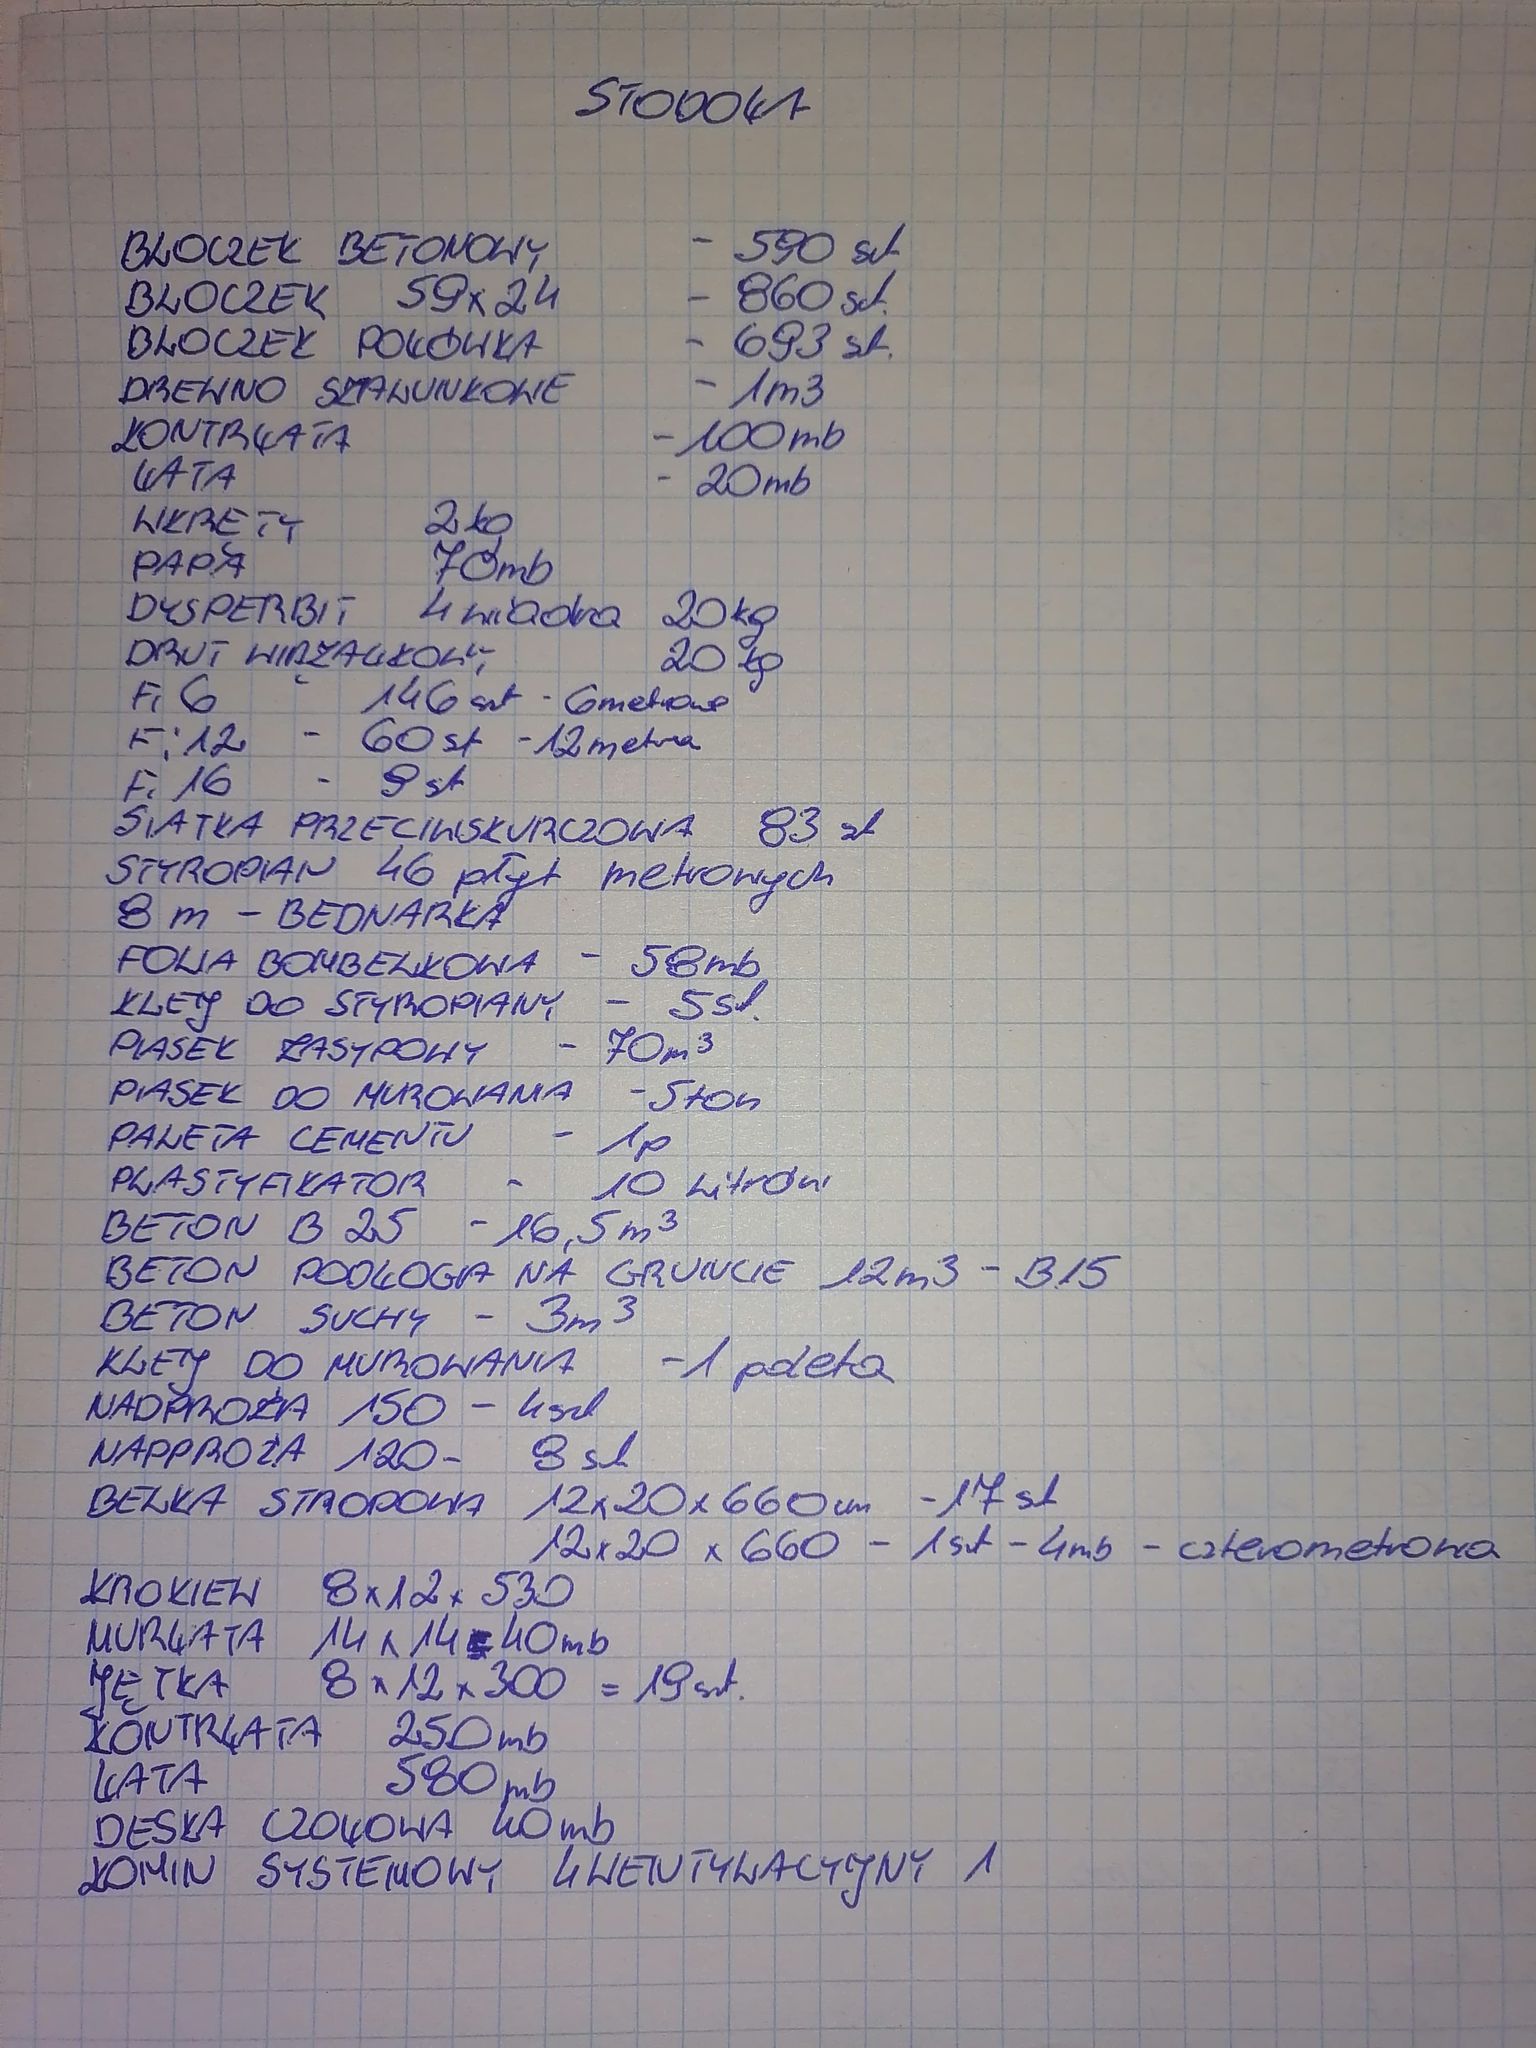 STODOŁA
BLOCZEK BETONOWY - 590 szt
BLOCZEK 59x24 - 860 szt.
BLOCZEK POŁÓWKA - 693 szt.
DREWNO SZALUNKOWE - 1m3
KONTRŁATA - 100mb
ŁATA - 20mb
WKRĘTY 2kg
PAPA 70mb
DYSPERBIT 4 wiadra 20kg
DRUT WIĄZAŁKOWY 20 kg
Fi 6 146 szt - 6metrowe
Fi 12 - 60 szt - 12metra
Fi 16 - 9 szt
SIATKA PRZECIWSKURCZOWA 83 szt
STYROPIAN 46 płyt metrowych
8 m - BEDNARKA
FOLIA BOMBELKOWA - 58mb
KLEJ DO STYROPIANY - 5 szt.
PIASEK ZASYPOWY - 70m³
PIASEK DO MUROWANIA - 5 ton
PALETA CEMENTU - 1p
PLASTYFIKATOR - 10 Litrów
BETON B 25 - 16,5m³
BETON PODŁOGA NA GRUNCIE 12m3 - B15
BETON SUCHY - 3m³
KLEJ DO MUROWANIA - 1 paleta
NADPROŻA 150 - 4szt
NADPROŻA 120 - 8 szt
BELKA STROPOWA 12x20x660cm - 17 szt
12x20 x 660 - 1szt - 4mb - czterometrowa
KROKIEW 8x12x530
MURŁATA 14x14 - 40mb
JĘTKA 8x12x300 = 19szt.
KONTRŁATA 250mb
ŁATA 580mb
DESKA CZOŁOWA 40mb
KOMIN SYSTEMOWY 4WENTYLACYJNY 1